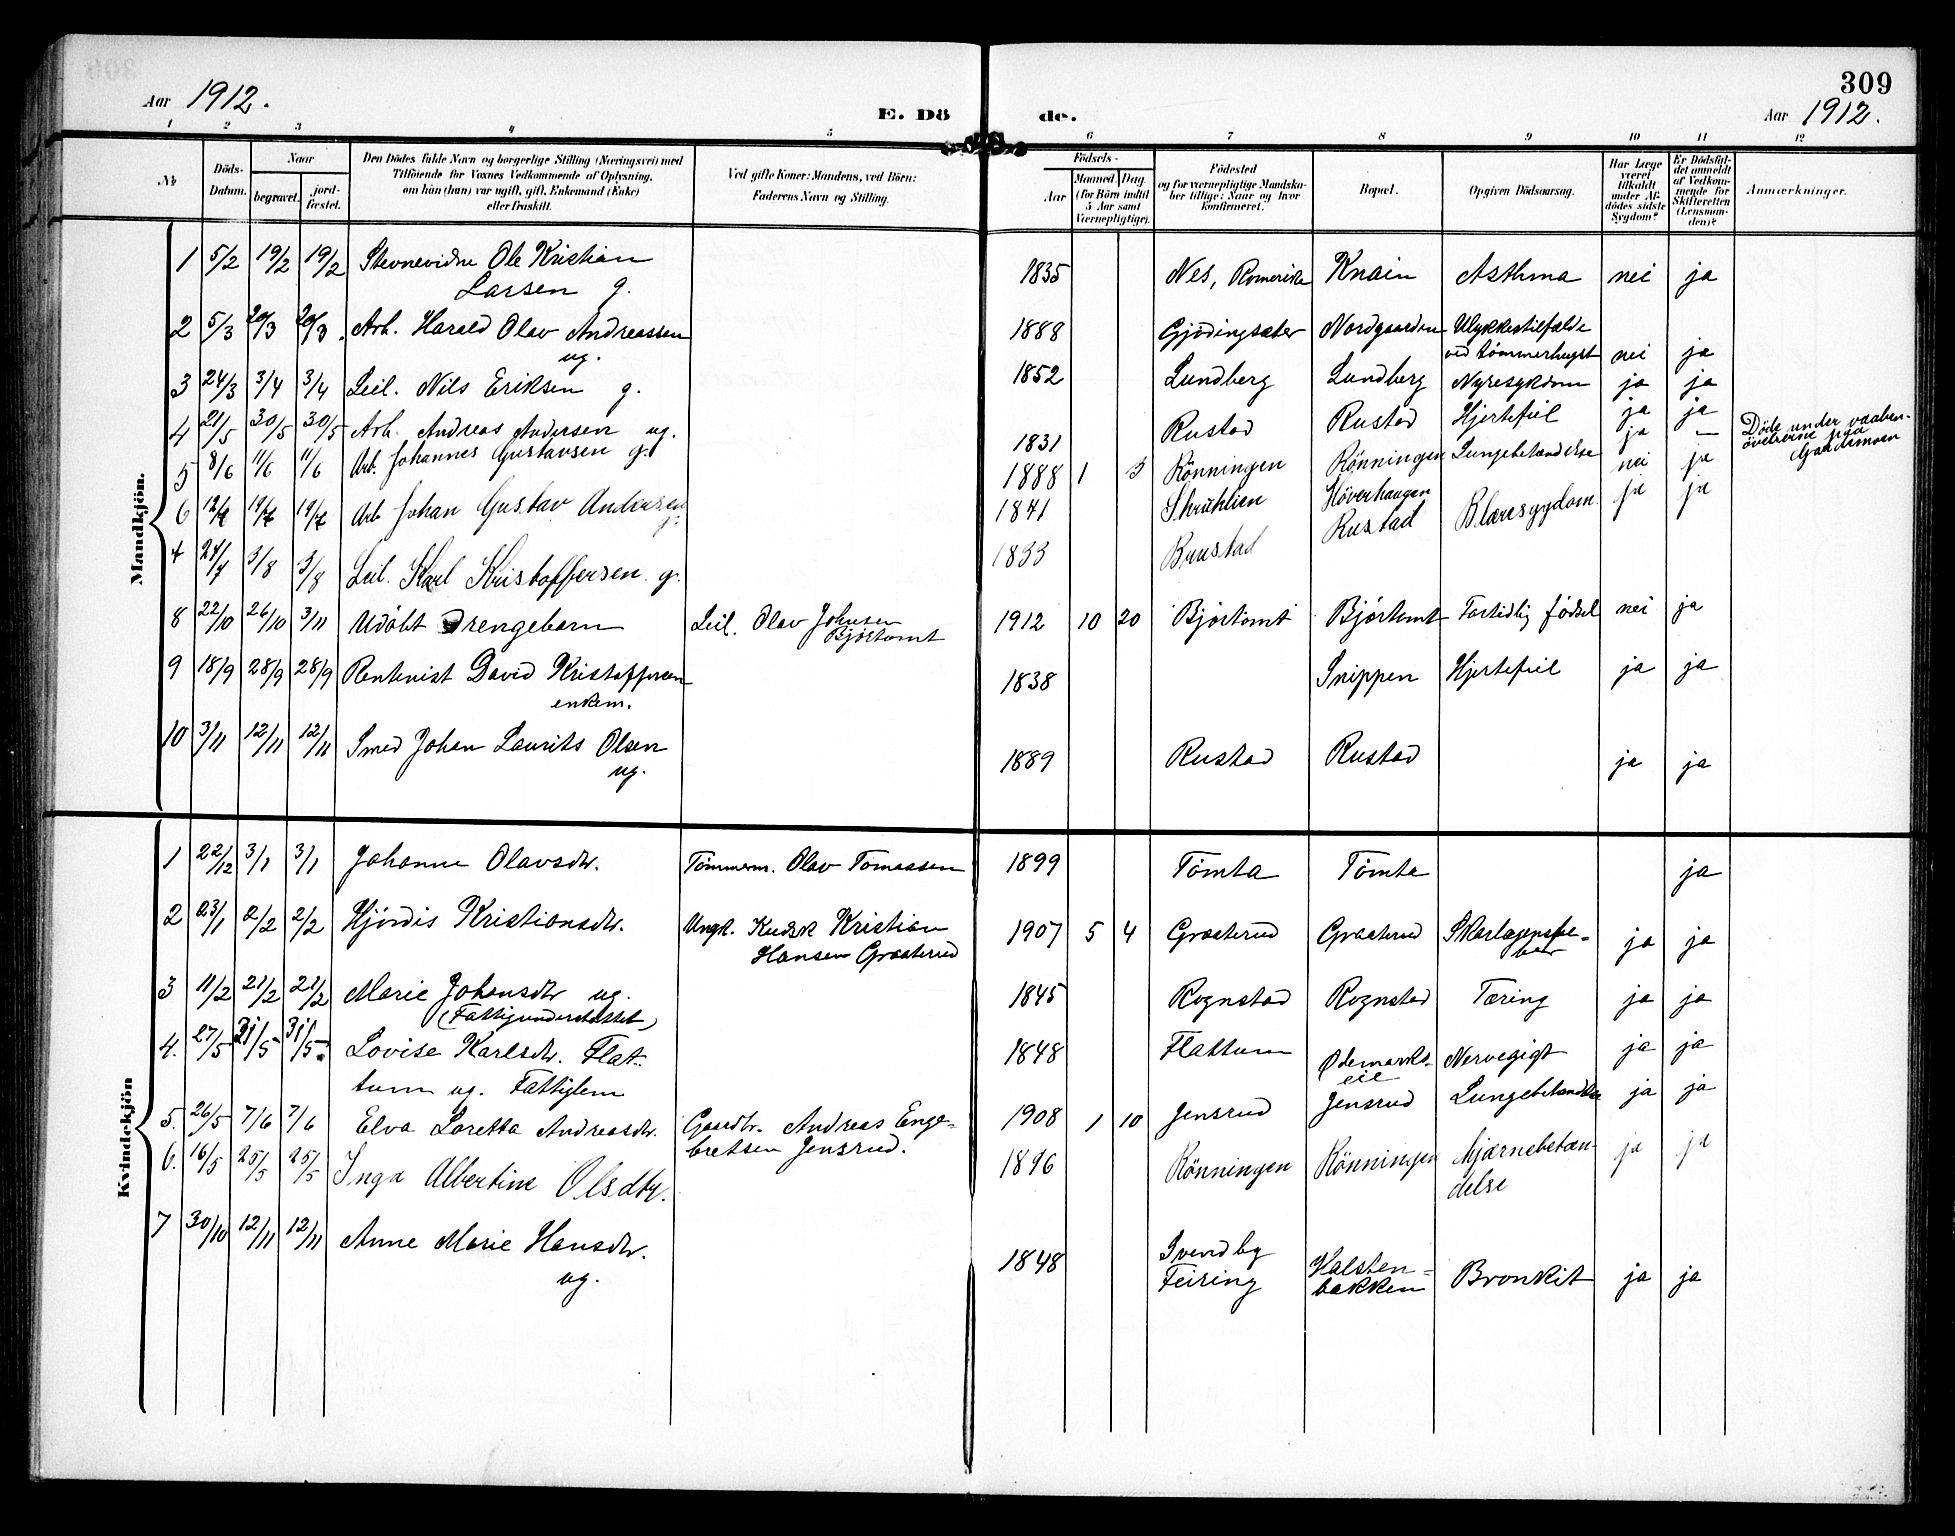 309
Aar 1912.
E. Dö de.
Aar 1912.
1 2 3 4 5 6 7 8 9 10 11 12
No
Döds-Datum.
Naar
begravet.
jord-fæstet.
Den Dödes fulde Navn og borgerlige Stilling (Næringsvei) med
Tilföiende for Voxnes Vedkommende af Oplysning,
om han (hun) var ugift, gift, Enkemand (Enke)
eller fraskilt.
Ved gifte Koner: Mandens, ved Börn:
Faderens Navn og Stilling.
Födsels-
Aar
Maaned. Dag.
(for Börn indtil
5 Aar samt
Værnepligtige).
Födested
og for værnepligtige Mandska-
ber tillige: Naar og hvor
konfirmeret.
Bopæl.
Opgiven Dödsaarsag.
Har Læge
været
tilkaldt
under Af-
dödes sidste
Sygdom?
Er Dödsfal-
det anmeldt
af Vedkom-
mende for
Skifteretten
(Lensman-
den)?
Anmærkninger.
Mandkjön.
1 5/2 19/2 19/2 Stevnevidne Ole Kristian
Larsen g.
1835 Nes, Romerike Knain Asthma nei ja
2 5/3 20/3 20/3. Arb. Harald Olav Andreassen
ug.
1888 Gjödingsæter Nordgaarden Ulykkestilfælde
ved tømmerhugst nei ja
3 24/3 3/4 3/4 Leil. Nils Eriksen g.
1852 Lundberg Lundberg Nyresykdom ja ja
4 21/5 30/5 30/5 Arb. Andreas Andersen ug.
1831 Rustad Rustad Hjertefeil ja ja
5 8/6 11/6 11/6 Arb. Johannes Gustavsen g.
1888 1 3 Rönningen Rönningen Lungebetændelse ja —
Døde under vaaben-
øvelserne paa
Gardermoen
6 12/7 19/7 19/7 Arb Johan Gustav Andersen
g.
1841 Skruklien Höverhaugen nei ja
7 24/7 3/8 3/8 Leil. Karl Kristoffersen g.
1833 Ruustad Rustad Blæresygdom. ja ja
8 22/10 26/10 3/11 Udöbt Drengebarn
Leil. Olav Johnsen
Bjørtomt
1912 10 20 Bjørtomt Bjørtomt Fortidlig fødsel nei ja
9 18/9 28/9 28/9 Rentenist David Kristoffersen
enkem.
1838 Snippen Hjertefeil ja ja
10 3/11 12/11 12/11 Smed Johan Laurits Olsen
ug.
1889 Rustad Rustad ja ja
Kvindekjön
1 22/12 3/1 3/1 Johanne Olavsdtr.
Tømmerm. Olav Tomassen
1899 Tømta Tømta ja
2 23/1 2/2 2/2 Hjørdis Kristiansdtr.
Ungk. Kudsk Kristian
Hansen Graaterud
1907 5 4 Graaterud Graaterud Skarlagensfe-
ber ja ja
3 11/2 21/2 21/2 Marie Johansdtr ug.
(Fattigunderstøttet)
1845 Rognstad Rognstad Tæring ja ja
4. 27/5 31/5 31/5. Lovise Karlsdtr. Flat-
tum ug. Fattiglem
1848 Flattum Ødemarks-
eie Nervegigt ja ja
5. 26/5 7/6 7/6 Elva Loretta Andreasdtr.
Gaardbr. Andreas Enge-
bretsen Jensrud.
1908 1 10 Jensrud Jensrud Lungebetændelse ja ja
6. 16/5 25/5 25/5 Inga Albertine Olsdtr.
1896 Rönningen Rönningen Hjærnebetæn-
delse ja ja
7 30/10 12/11 12/11 Anne Marie Hansdtr.
ug.
1848 Svendby
Feiring Halsten-
bakken Bronkit ja ja